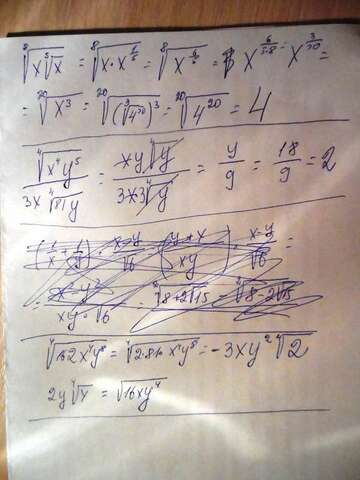 ⁸√(x ⁵√x) = ⁸√(x · x^(1/5)) = ⁸√(x^(6/5)) = x^(6/(5·8)) = x^(3/20) =
= ²⁰√(x³) = ²⁰√((³√(4²⁰))³) = ²⁰√(4²⁰) = 4
⁴√(x⁴y⁵) / (3x ⁴√(81y)) = xy ⁴√y / (3x3 ⁴√y) = y/9 = 18/9 = 2
(1/x + 1/y) · (x-y)/√6 = (y+x)/(xy) · (x-y)/√6 =
⁴√(162x⁴y⁸) = ⁴√(2·81x⁴y⁸) = -3xy² ⁴√2
2y ⁴√x = √(16xy⁴)